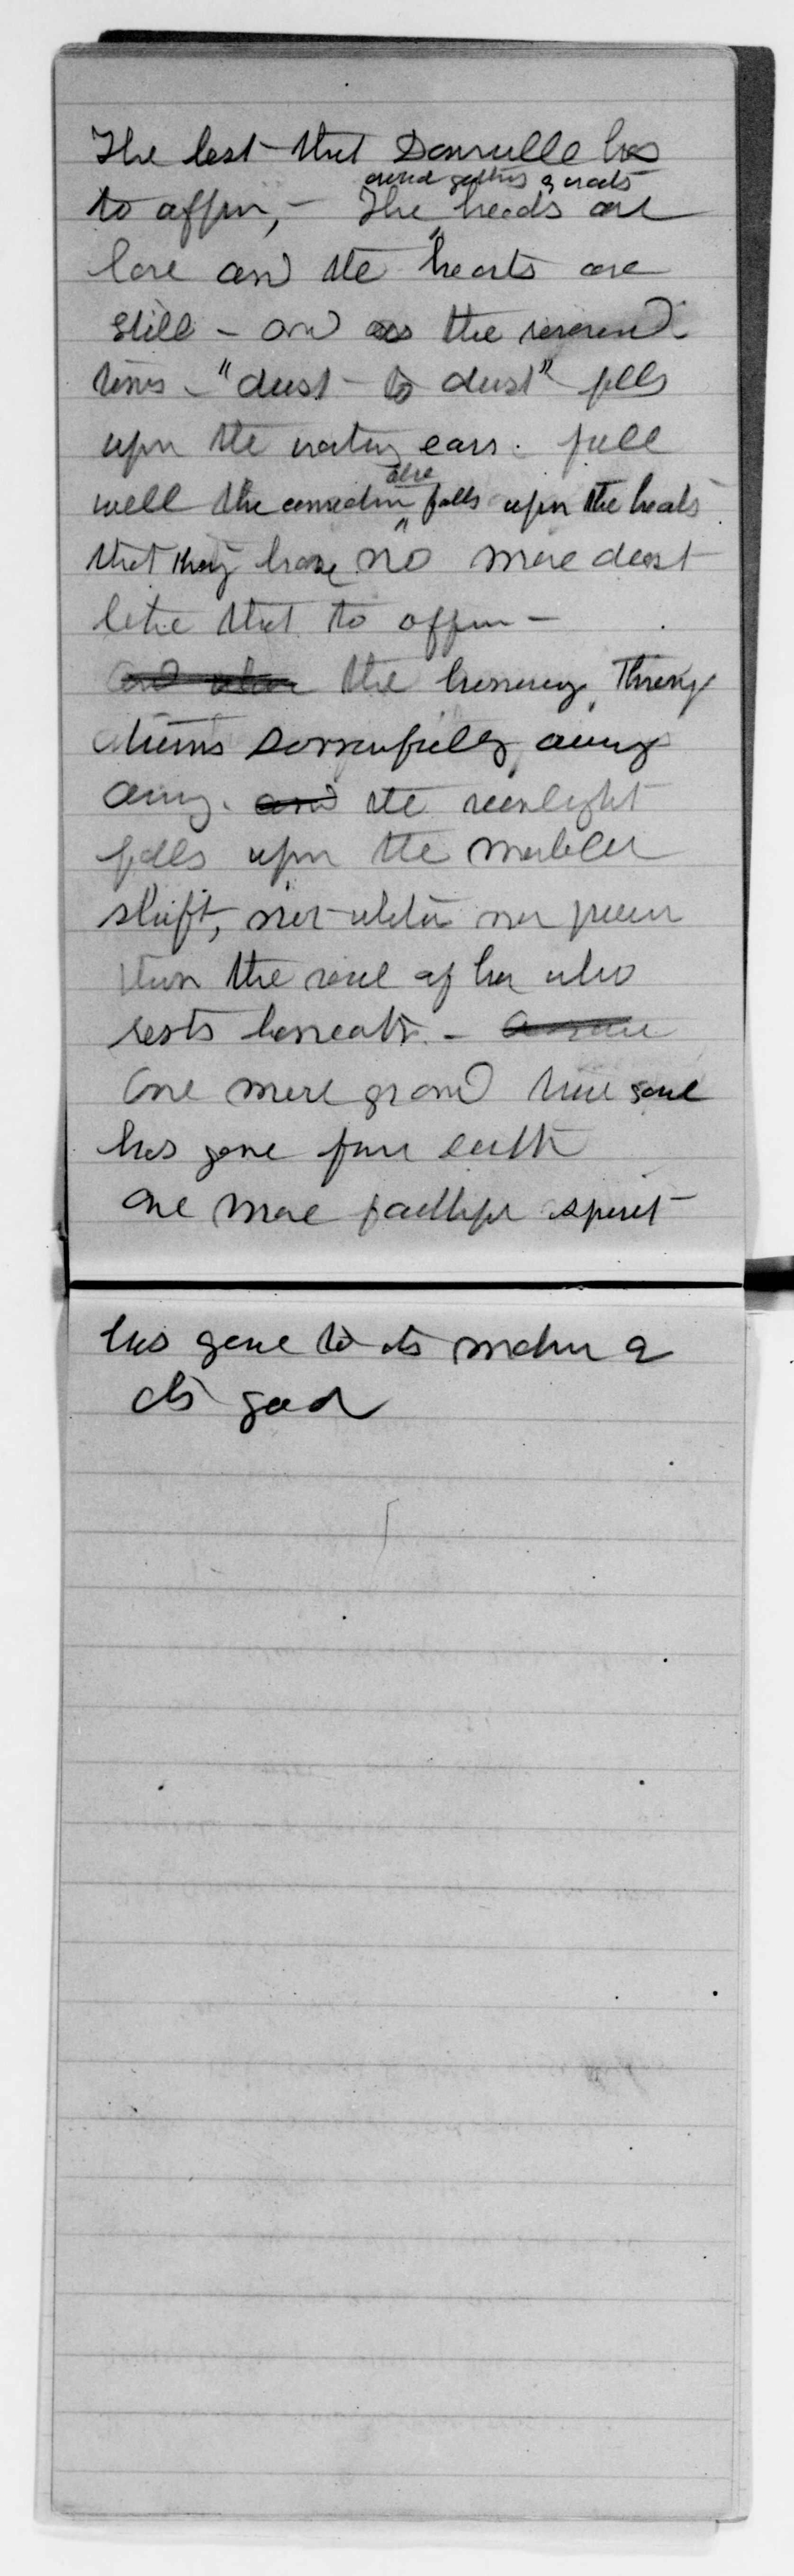 The best that Dansville has
around gathers & waits
to offer, - The heads are
bare and the hearts are
still - and as the reverend
tones - "dust to dust" falls
upon the waiting ears. full
well the conviction also falls upon the heads
that they have no more dust
like that to offer -
And when the
throng
turns sorrowfully away
and the sunlight
falls upon the marble
shaft, not whiter nor purer
than the soul of her who
rests beneath. -
One more grand true soul
has gone from earth
One more faithful spirit
has gone to its maker &
its god